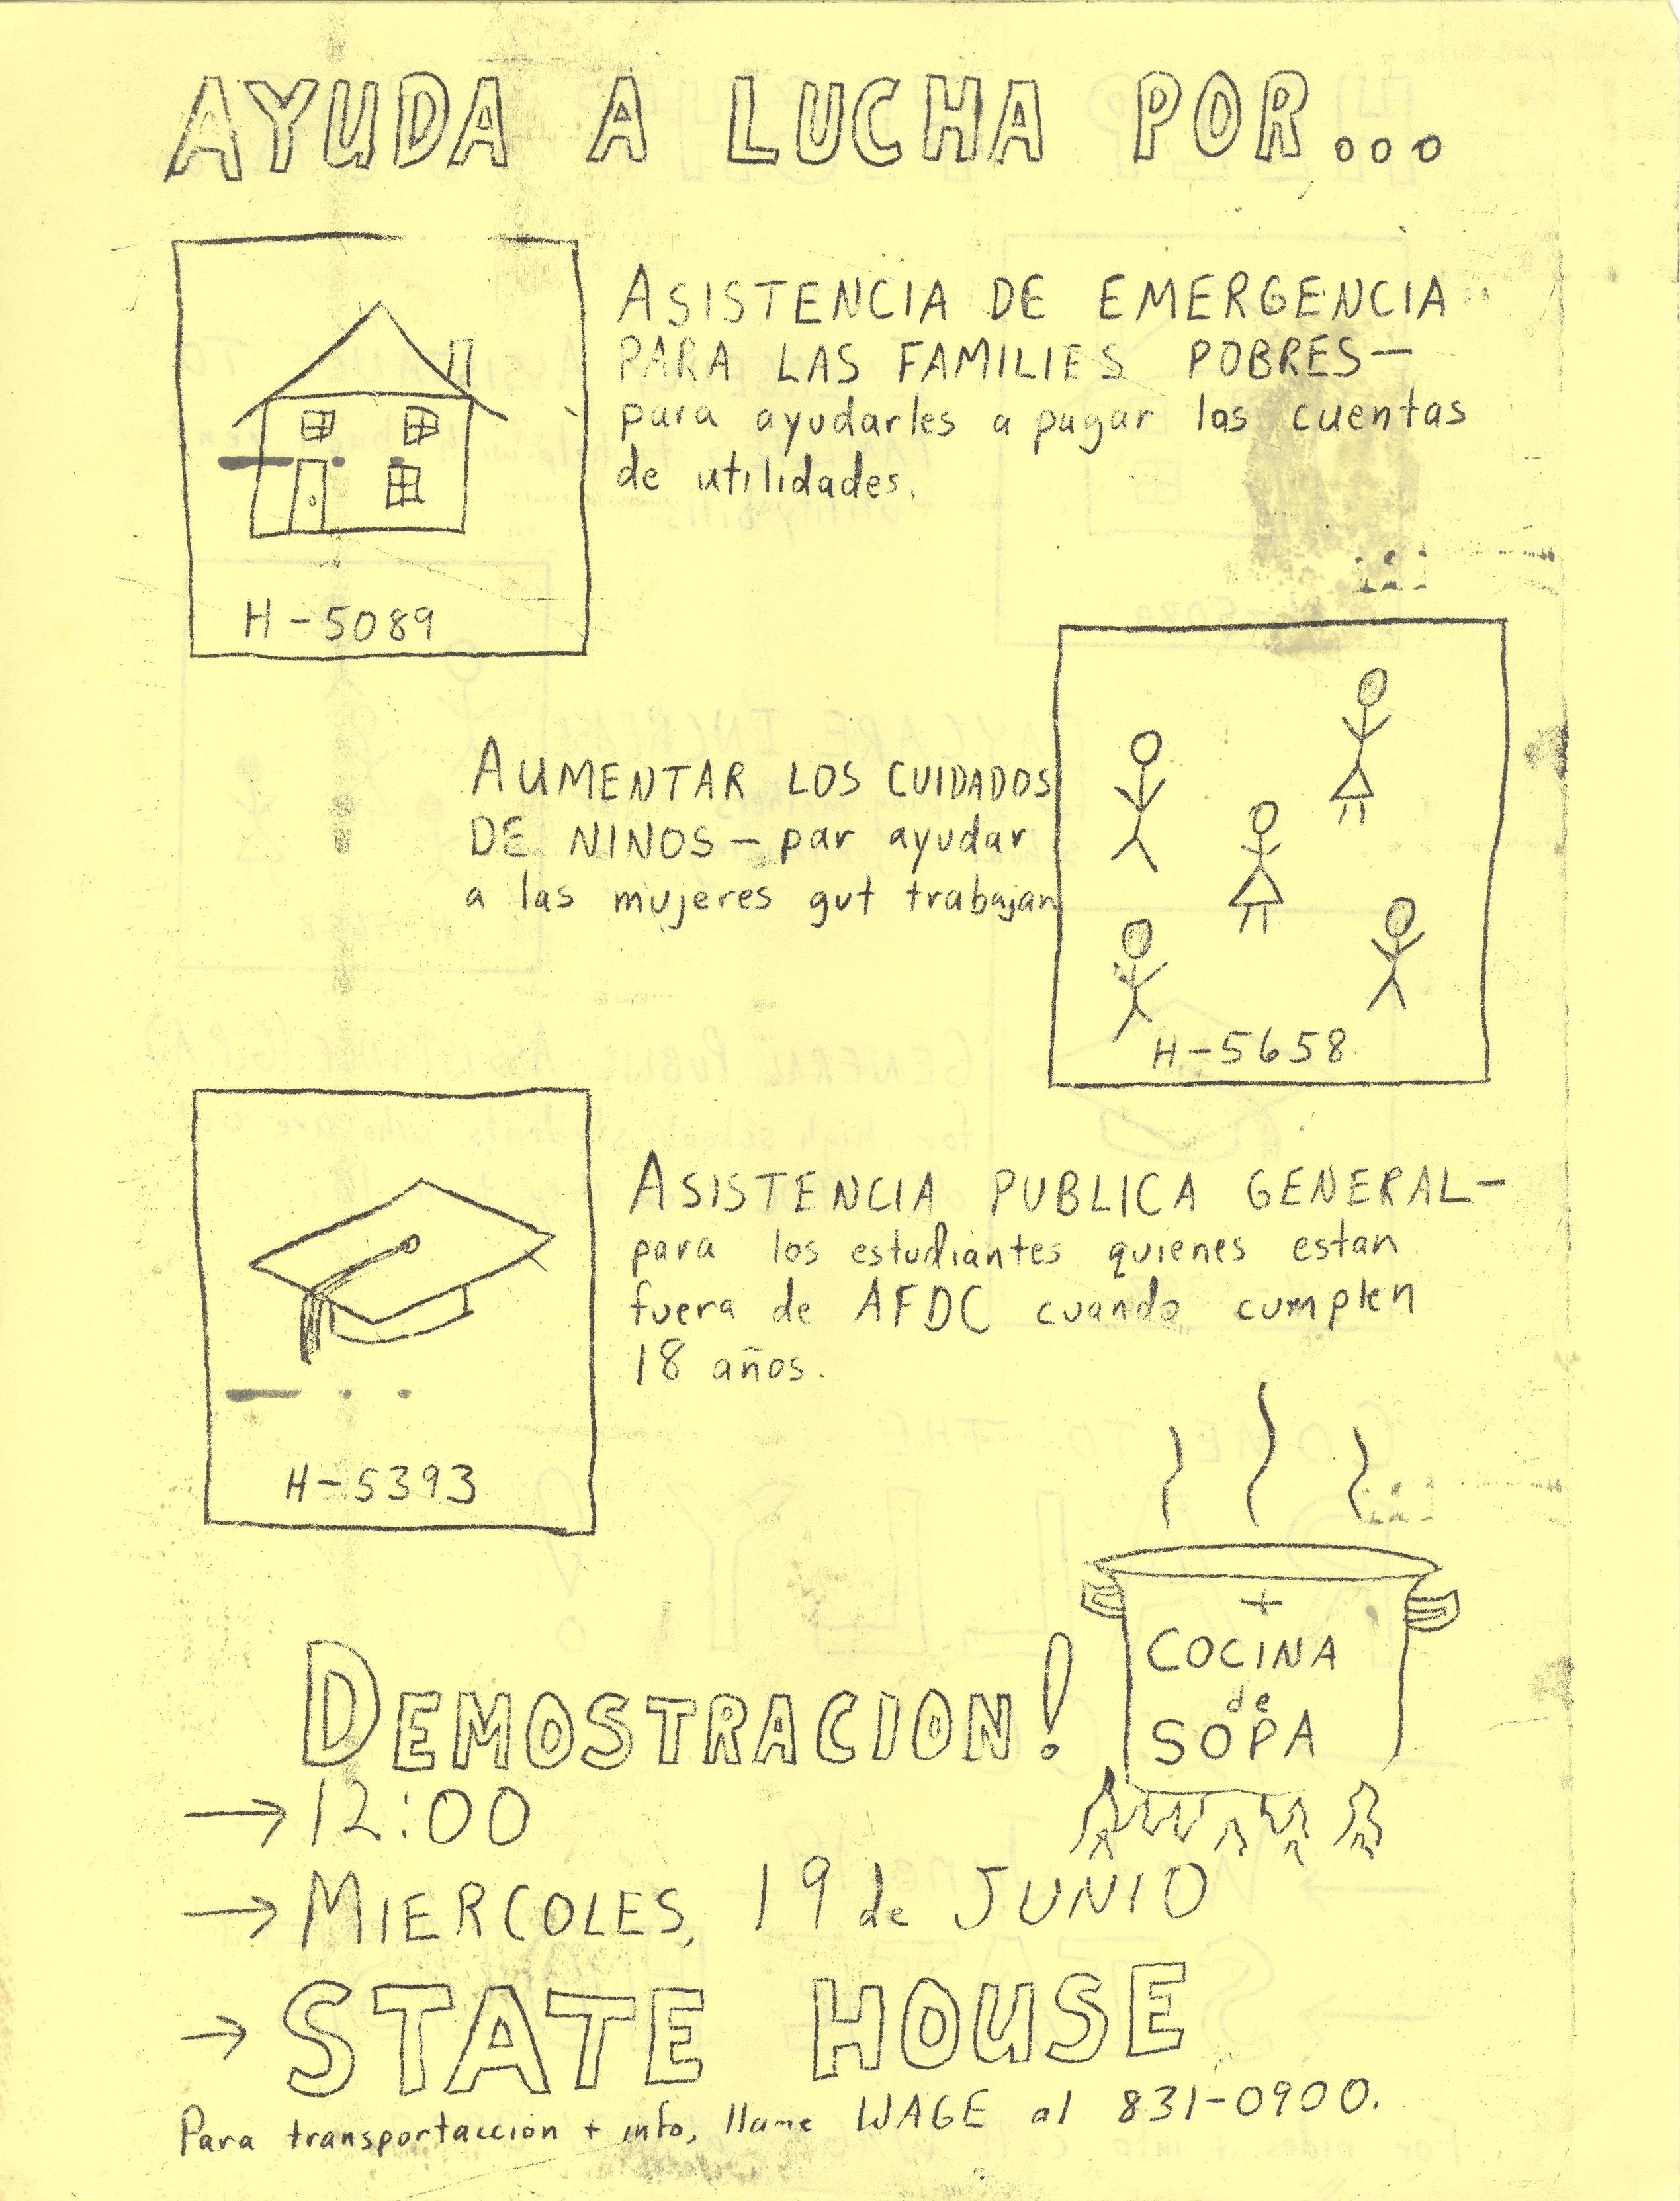 AYUDA A LUCHA POR...
ASISTENCIA DE EMERGENCIA
PARA LAS FAMILIES POBRES—
para ayudarles a pagar las cuentas
de utilidades.
H-5089
AUMENTAR LOS CUIDADOS
DE NINOS — par ayudar
a las mujeres gut trabajan
H-5658
ASISTENCIA PUBLICA GENERAL—
para los estudiantes quienes estan
fuera de AFDC cuando cumplen
18 años.
H-5393
+
COCINA
de
SOPA
DEMOSTRACION!
→ 12:00
→ MIERCOLES, 19 de JUNIO
→ STATE HOUSE
Para transportaccion + info, llame WAGE al 831-0900.